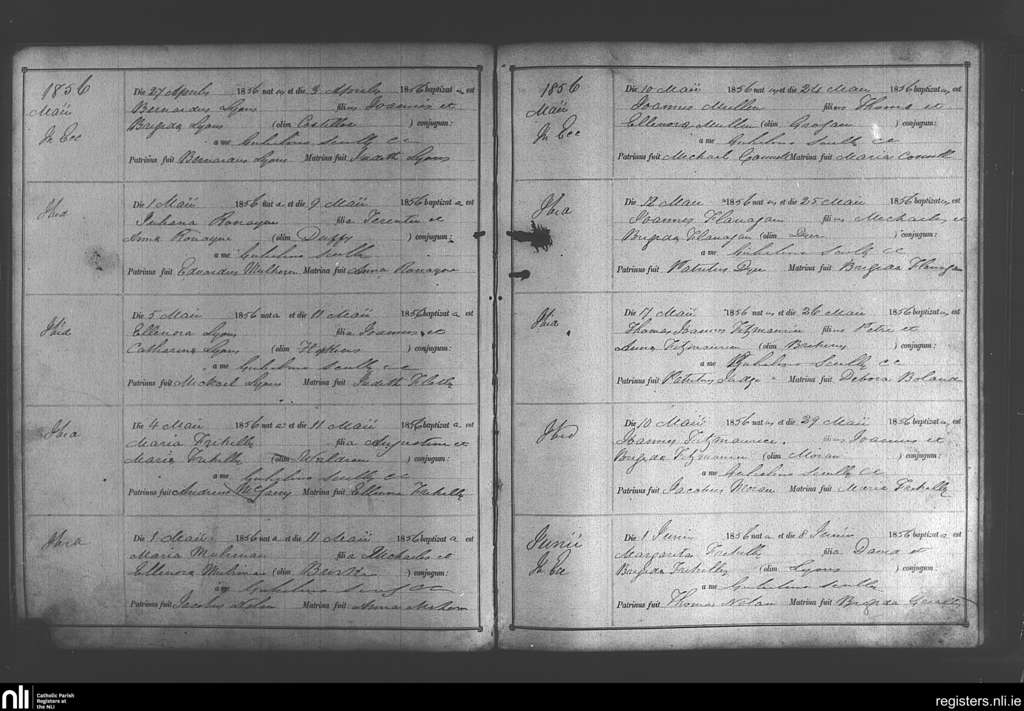 1856
Maii
In Ecc
Die 27 Aprilis 1856 nat us et die 3 Aprilis 1856 baptizat us est
Bernardus Lyons filius Joannis et
Brigida Lyons (olim Costelloe ) conjugum:
a me Gulielmo Scully CC
Patrinus fuit Bernardus Lyons Matrina fuit Judith Lyons
Ibid
Die 1 Maii 1856 nat a et die 9 Maii 1856 baptizat a est
Juliana Ronayne filia Terentii et
Anna Ronayne (olim Duffy ) conjugum:
a me Gulielmo Scully
Patrinus fuit Edvardus Mulhern Matrina fuit Anna Ronayne
Ibid
Die 5 Maii 1856 nat a et die 11 Maii 1856 baptizat a est
Ellenora Lyons filia Joannis et
Catharina Lyons (olim Hopkins ) conjugum:
a me Gulielmo Scully CC
Patrinus fuit Michael Lyons Matrina fuit Judith
Ibid
Die 4 Maii 1856 nat a et die 11 Maii 1856 baptizat a est
Maria filia Augustini et
Maria (olim Waldron ) conjugum:
a me Gulielmo Scully CC
Patrinus fuit Andreas Matrina fuit
Ibid
Die 1 Maii 1856 nat a et die 11 Maii 1856 baptizat a est
Maria filia Michaelis et
Ellenora (olim Burke ) conjugum:
a me Gulielmo Scully CC
Patrinus fuit Jacobus Nolan Matrina fuit Anna
1856
Maii
In Ecc
Die 10 Maii 1856 nat us et die 24 Maii 1856 baptizat us est
Joannes Mullen filius Thoma et
Ellenora Mullen (olim Grogan ) conjugum:
a me Gulielmo Scully CC
Patrinus fuit Michael Matrina fuit Maria
Ibid
Die 12 Maii 1856 nat us et die 25 Maii 1856 baptizat us est
Joannes Flanagan filius Michaelis et
Brigida Flanagan (olim Dyer ) conjugum:
a me Gulielmo Scully CC
Patrinus fuit Patritius Dyer Matrina fuit Brigida Flanagan
Ibid
Die 17 Maii 1856 nat us et die 26 Maii 1856 baptizat us est
Thomas Joannes Fitzmaurice filius Petri et
Anna Fitzmaurice (olim ) conjugum:
a me Gulielmo Scully CC
Patrinus fuit Patritius Judge Matrina fuit Debora Boland
Ibid
Die 10 Maii 1856 nat us et die 29 Maii 1856 baptizat us est
Joannes Fitzmaurice filius Joannis et
Brigida Fitzmaurice (olim Moran ) conjugum:
a me Gulielmo Scully CC
Patrinus fuit Jacobus Moran Matrina fuit Maria
Junii
In Ecc
Die 1 Junii 1856 nat a et die 8 Junii 1856 baptizat a est
Margarita filia David et
Brigida (olim Lyons ) conjugum:
a me Gulielmo Scully
Patrinus fuit Thomas Nolan Matrina fuit Brigida
nli
Catholic Parish
Registers at
the NLI
registers.nli.ie